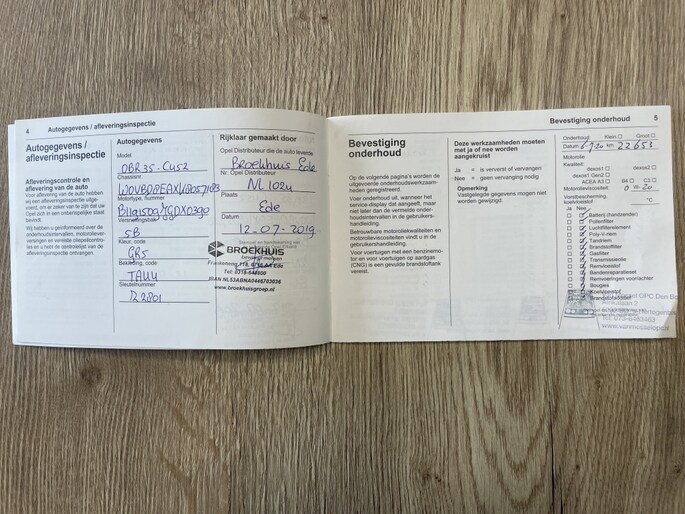 4 Autogegevens / afleveringsinspectie
Autogegevens /
afleveringsinspectie
Afleveringscontrole en
aflevering van de auto
Voor aflevering van de auto hebben
wij een afleveringsinspectie uitge-
voerd, om er zeker van te zijn dat uw
Opel zich in een onberispelijke staat
bevindt.
Wij hebben u geïnformeerd over de
onderhoudsintervallen, motorolieverver-
singen en vereiste oliepeilcontro-
les en u hebt de aantekening van de
afleveringsinspectie ontvangen.
Autogegevens
Model
OBR35-CU52
Chassisnr.
Motortype, nummer
5B
Kleur, code
GR5
Bekleding, code
TAUU
Sleutelnummer
Rijklaar gemaakt door
Opel Distributeur die de auto leverde
Broekhuis Ede
Nr. Opel Distributeur
NL1024
Plaats
Ede
Datum
12-07-2019
BROEKHUIS
Tel: 0318-648800
IBAN NL53ABNA0446703038
www.broekhuisgroep.nl
Bevestiging onderhoud 5
Bevestiging
onderhoud
Op de volgende pagina's worden de
uitgevoerde onderhoudswerkzaam-
heden geregistreerd.
Voer onderhoud uit, wanneer het
service-display dat aangeeft, maar
niet later dan de vermelde onder-
houdsintervallen in de gebruikers-
handleiding.
Betrouwbare motoroliekwaliteiten en
motorolieviscositeiten vindt u in de
gebruikershandleiding.
Voor voertuigen met een benzinemo-
tor en voor voertuigen op aardgas
(CNG) is een gevulde brandstoftank
vereist.
Deze werkzaamheden moeten
met ja of nee worden
aangekruist
Ja = is ververst of vervangen
Nee = geen vervanging nodig
Opmerking
Vastgelegde gegevens mogen niet
worden gewijzigd.
Onderhoud: Klein Groot
Datum 6-7-20 km 22653
Motorolie
Kwaliteit:
dexos1 dexos2
dexos1 Gen2
ACEA A3 B4 C3
Motorolieviscositeit 0 W-20
Vorstbescherming,
koelvloeistof °C
Ja Nee
Batterij (handzender)
Pollenfilter
Luchtfilterelement
Poly-V-riem
Tandriem
Brandstoffilter
Gasfilter
Transmissieolie
Remvloeistof
Bandenreparatieset
Remvoeringen voor/achter
Bougies
Koelvloeistof